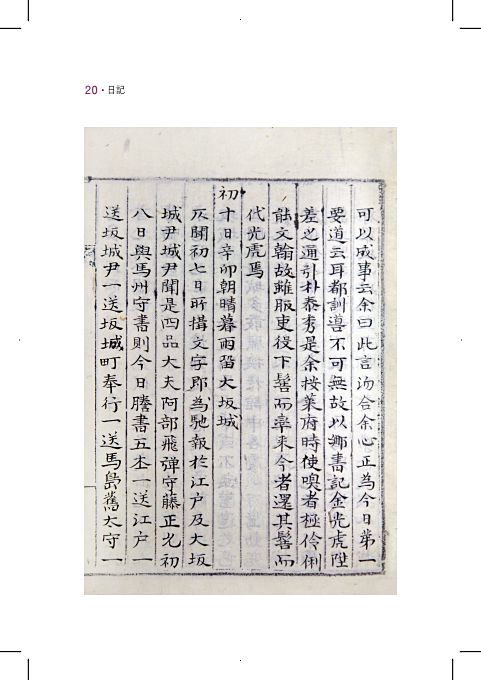 20 · 日記
可以成事云余曰此言沕合余心正為今日第一
要道云耳都訓導不可無故以鄉書記金光虎陞
差之通引朴泰秀是余按萊府時使喚者極伶俐
能文翰故雖服吏役下髻而率來今者還其髻而
代光虎焉
初十日辛卯朝晴暮雨留大坂城
仄聞初七日所搆文字郎為馳報於江戶及大坂
城尹城尹聞是四品大夫阿部飛彈守藤正允初
八日與馬州守書則今日謄書五本一送江戶一
送坂城尹一送坂城町奉行一送馬島舊太守一